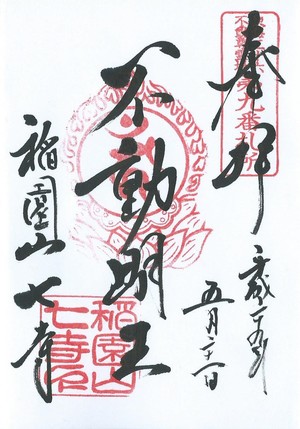 奉拝
平成二十五年
五月二十一日
不動明王
稲園山七寺
稲園山
七寺印
第九番札所